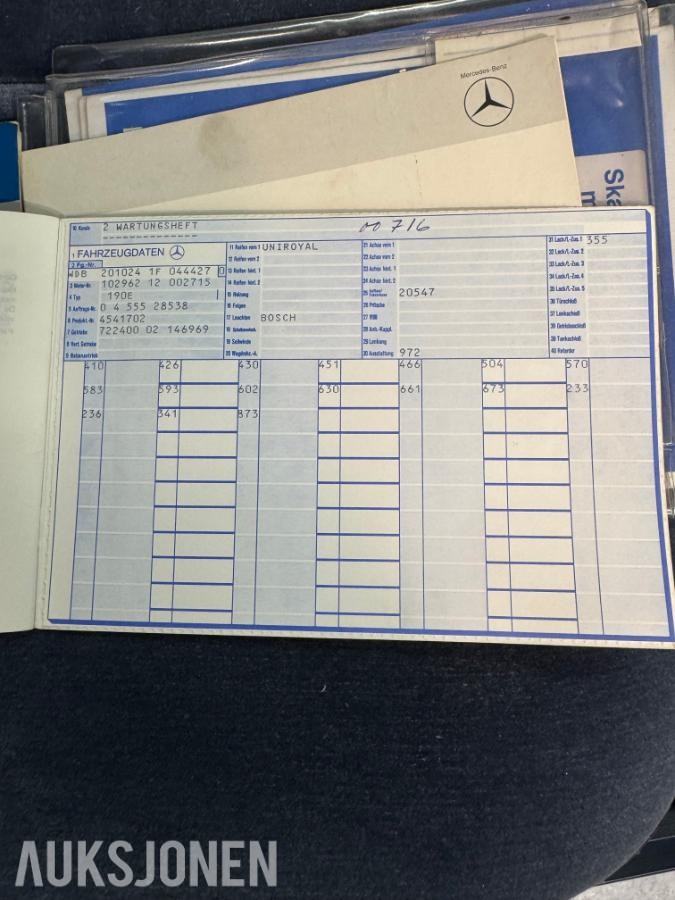 Mercedes-Benz
Ska
m
10 Kunde 2 WARTUNGSHEFT 00 716
1 FAHRZEUGDATEN
2 Fg.-Nr.
WDB 201024 1F 044427 0
3 Motor-Nr. 102962 12 002715
4 Typ 190E
5 Auftrags-Nr. 0 4 555 28538
6 Produkt.-Nr. 4541702
7 Getriebe 722400 02 146969
8 Vert. Getriebe
9 Nebenantrieb
11 Reifen vorn 1 UNIROYAL
12 Reifen vorn 2
13 Reifen hint. 1
14 Reifen hint. 2
16 Felgen
17 Leuchten BOSCH
21 Achse vorn 1
22 Achse vorn 2
23 Achse hint. 1
24 Achse hint. 2
25 20547
26 Pritsche
28 Anh.-Kuppl.
29 Lenkung
30 Ausstattung 972
31 Lack/L-Zus. 1 355
32 Lack/L-Zus. 2
33 Lack/L-Zus. 3
34 Lack/L-Zus. 4
35 Lack/L-Zus. 5
36 Türschloß
37 Lenkschloß
39 Tankschloß
40 Retarder
410 426 430 451 466 504 570
583 593 602 630 661 673 233
236 341 873
AUKSJONEN